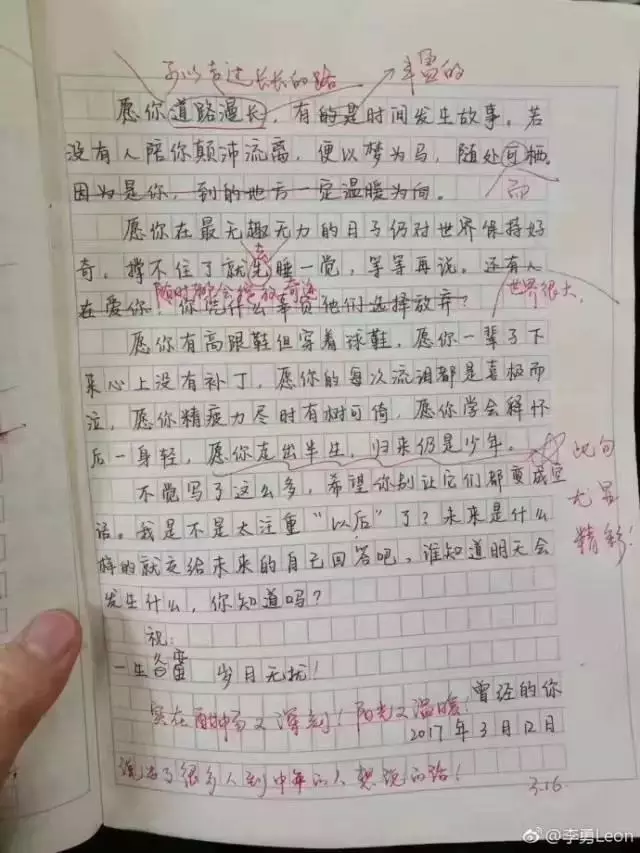 可以走过长长的路 丰富的
愿你道路漫长，有的是时间发生故事。若
没有人陪你颠沛流离，便以梦为马，随处可栖。
因为是你，到的地方一定温暖为向。 而
愿你在最无趣无力的日子仍对世界保持好
奇，撑不住了就先睡一觉，等等再说。还有人
去
随时都会提放奇迹 世界很大，
在爱你！你凭什么辜负他们选择放弃？
愿你有高跟鞋但穿着球鞋，愿你一辈子下
来心上没有补丁，愿你的每次流泪都是喜极而
泣，愿你精疲力尽时有树可倚，愿你学会释怀
后一身轻，愿你走出半生，归来仍是少年。
此句
尤是
精彩！
不觉写了这么多，希望你别让它们都变成空
话。我是不是太注重“以后”了？未来是什么
样的就交给未来的自己回答吧，谁知道明天会
发生什么，你知道吗？
祝：
一生 岁月无扰！
曾经的你
实在酣畅又深刻！阳光又温暖！
2017年3月12日
说出了很多人到中年的人想说的话！
3.16
@李勇Leon